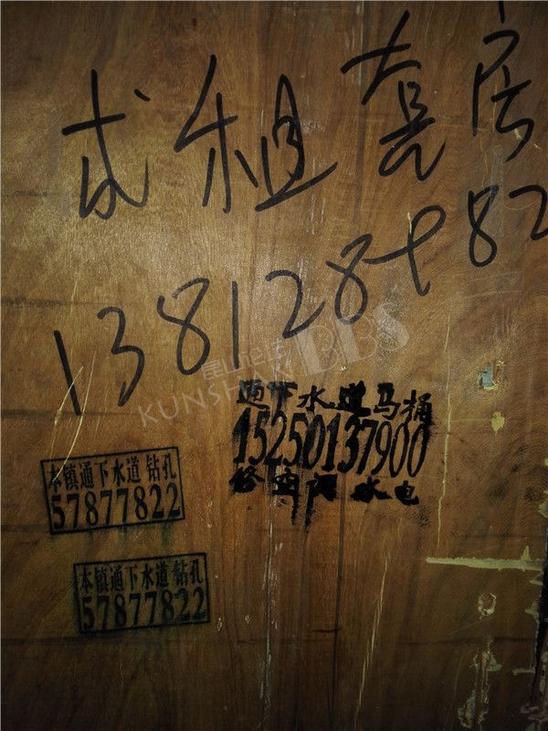 求租套房
138128982
昆山论坛BBS
KUNSHAN
通下水道马桶
15250137900
修空调水电
本镇通下水道 钻孔
57877822
本镇通下水道 钻孔
57877822